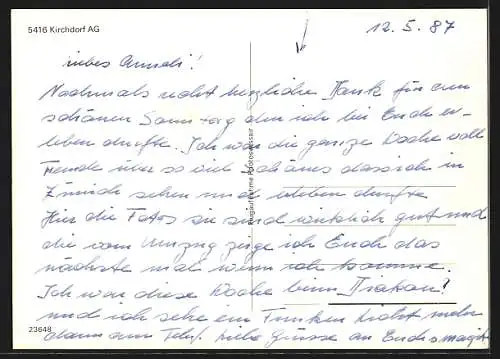 5416 Kirchdorf AG
12.5.87
Liebes Anneli!
Nochmals recht herzliche Dank für den
schönen Sonntag den ich bei Euch er-
leben durfte. Ich war die ganze Woche voll
Freude über so viel schönes dass ich in
Zürich sehen und erleben durfte
Hier die Fotos sie sind wirklich gut und
die vom Umzug zeige ich Euch das
nächste mal wenn ich komme.
Ich war diese Woche beim
und ich sehe ein Funken Licht mehr
dann am Telef. Liebe Grüsse an Euch
23648